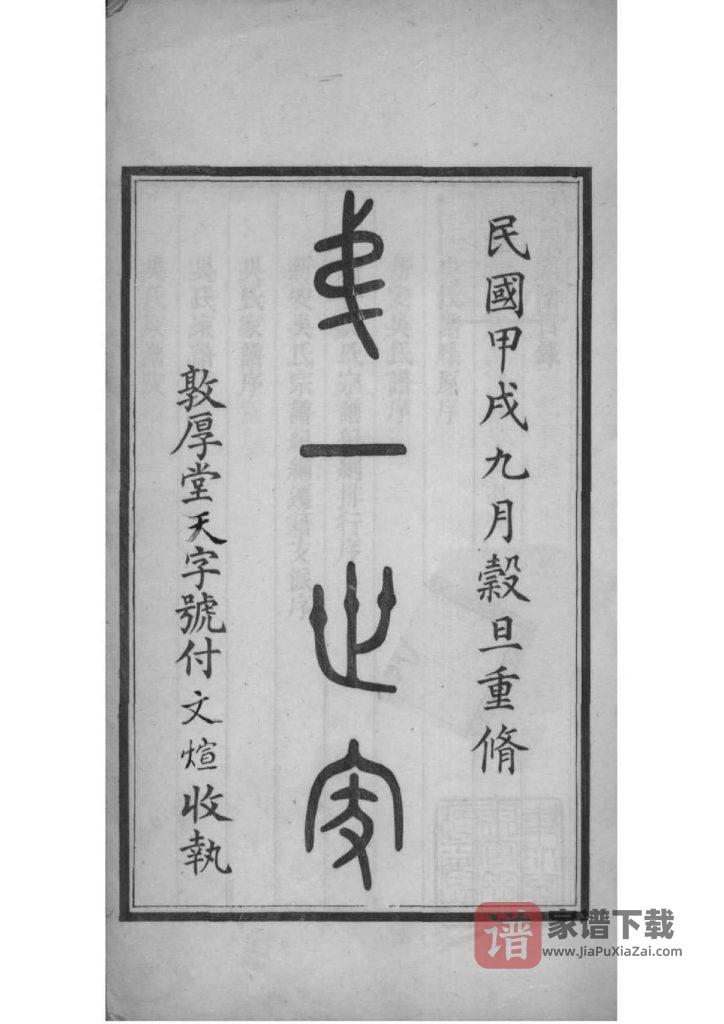 民國甲戌九月穀旦重脩
弟一世家
敦厚堂天字號付文煊收執
谱 家谱下载
www.JiaPuXiaZai.com